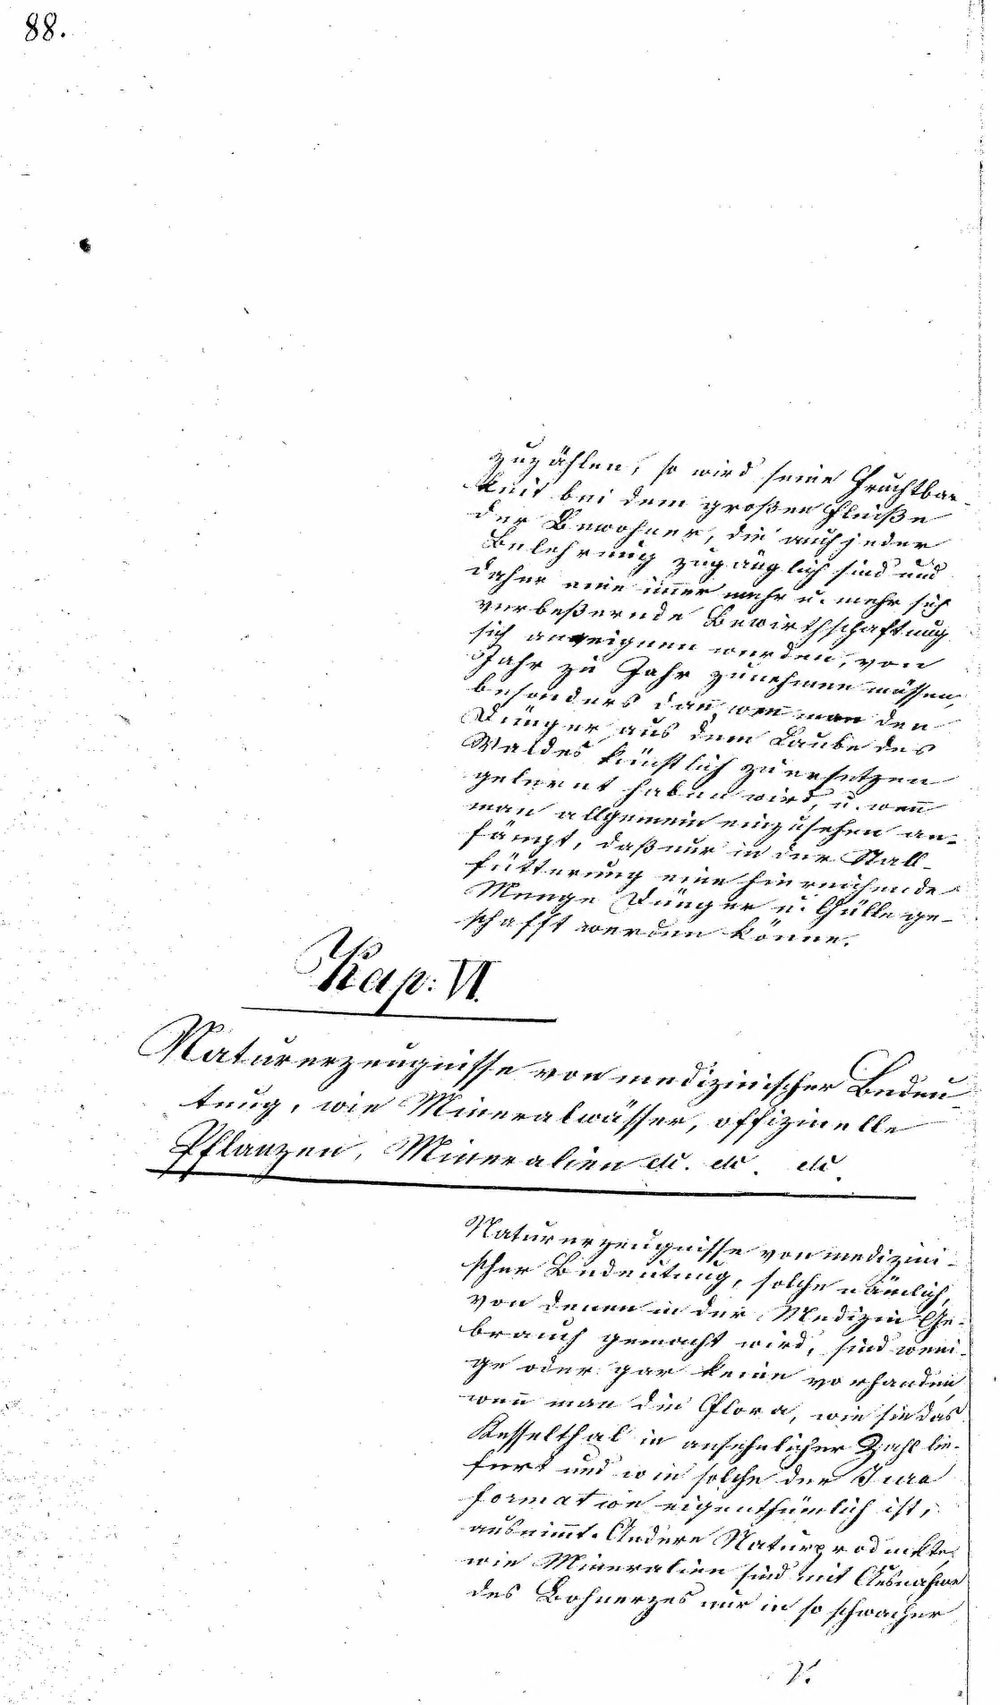 88.
zuzählen, so wird seine Fruchtbar-
keit bei dem großen Fleiße
der Bewohner, die auch jeder
Belehrung zugänglich sind und
daher eine im̅er mehr u. mehr sich
verbeßernde Bewirthschaftung
sich aneignen werden, von
Jahr zu Jahr zunehmen müssen,
besonders dan̅, wen̅ man den
Dünger aus dem Laube des
Waldes künstlich zu ersetzen
gelernt haben wird, u. wen̅
man allgemein einzusehen an-
fängt, daß nur in der Stall-
fütterung eine hinreichende
Menge Dünger u. Gülle ge-
schafft werden könne.
Kap: VI.
Naturerzeugnisse von medizinischer Bedeu-
tung, wie Mineralwässer, offizinelle
Pflanzen, Mineralien etc. etc. etc.
Naturerzeugnisse von medizini-
scher Bedeutung, solche nämlich,
von denen in der Medizin Ge-
brauch gemacht wird, sind weni-
ge oder gar keine vorhanden,
wenn man die Flora, wie sie das
Kesselthal in ansehnlicher Zahl lie-
fert und wie solche der Jura
formation eigenthümlich ist,
ausnim̅t. Andere Naturprodukte,
wie Mineralien sind mit Ausnahme
des Bohnerzes nur in so schwacher